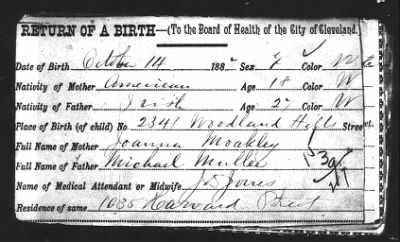 RETURN OF A BIRTH—(To the Board of Health of the City of Cleveland.
Date of Birth October 14 188 Sex f Color W
Nativity of Mother American Age 18 Color W
Nativity of Father Irish Age 27 Color W
Place of Birth (of child) No. 2341 Woodland Hills Street.
Full Name of Mother Joanna Moakley
Full Name of Father Michael Mullee
Name of Medical Attendant or Midwife J D Jones
Residence of same 1035 Harvard Street